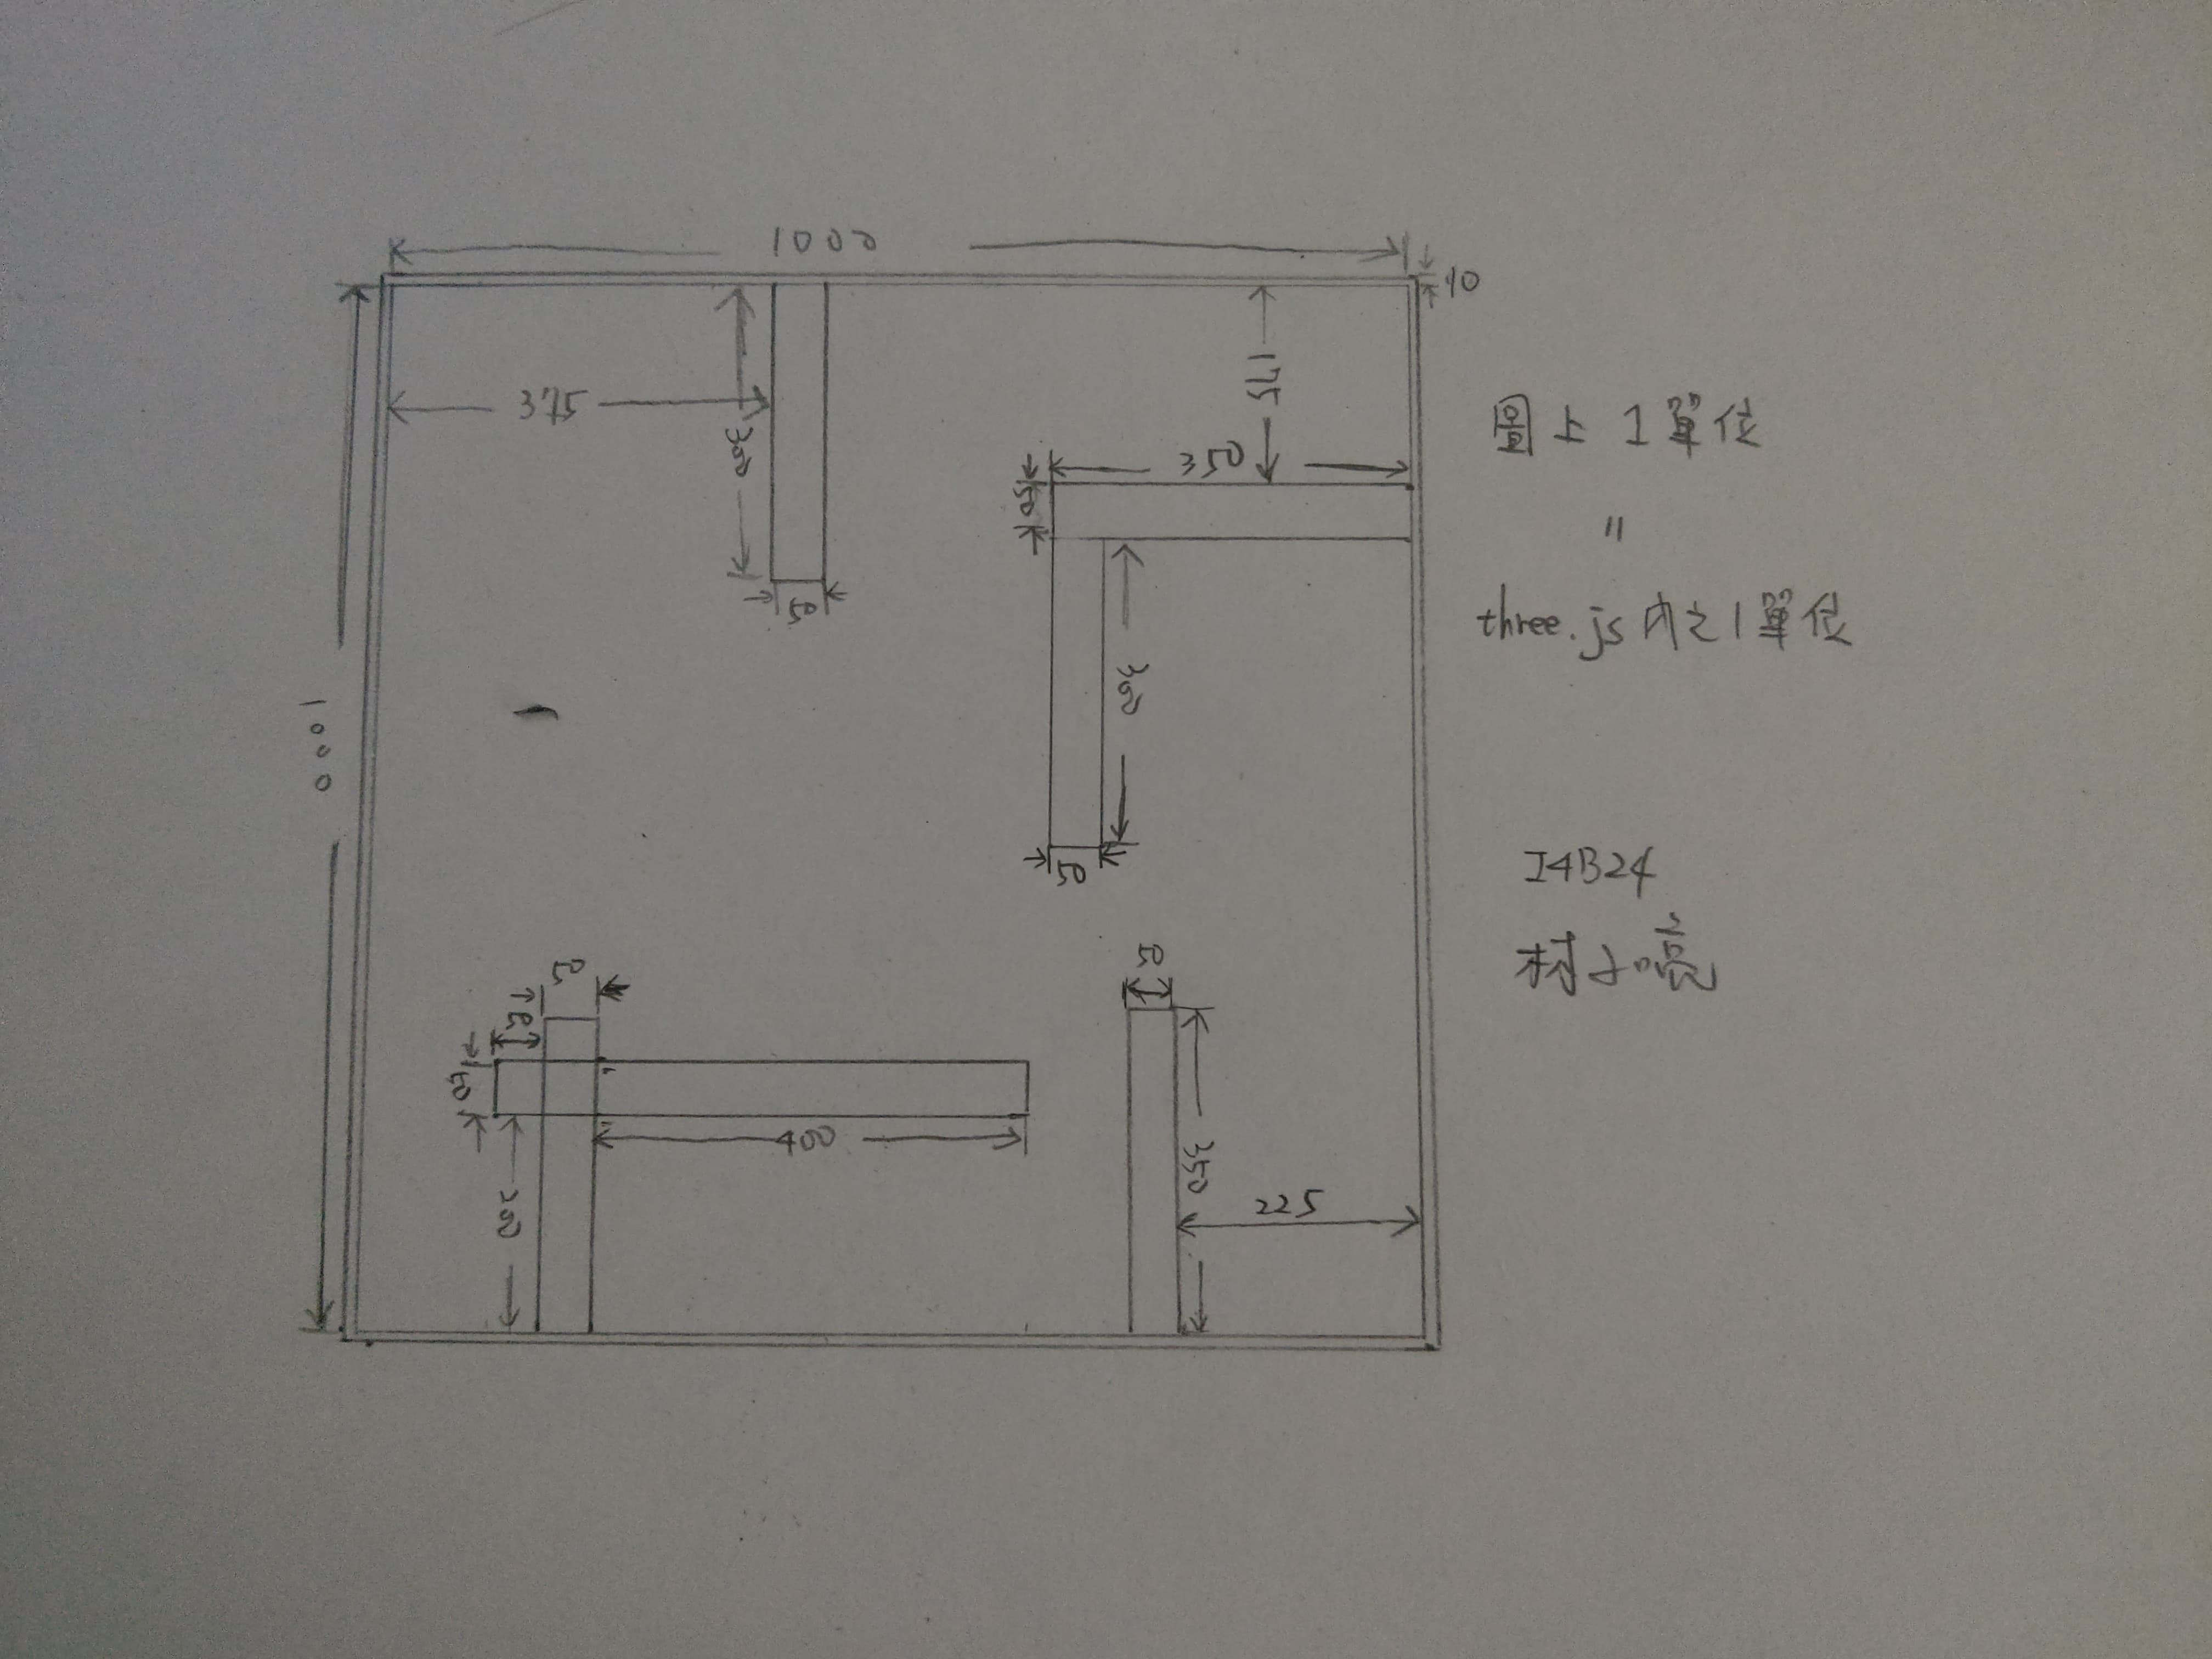 1000
10
375
300
175
350
50
50
300
50
1000
50
50
50
50
400
200
350
225
圖上 1 單位
"
three.js 內之 1 單位
I4B24